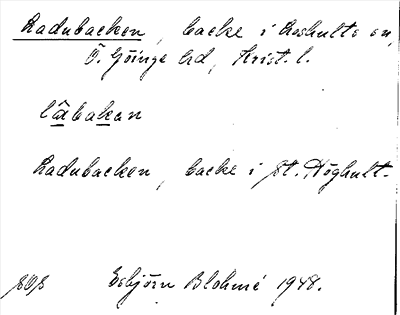 Ladubacken, backe i Loshults sn,
Ö. Göinge hd, Krist. l.
lâ̱bak̲an
Ladubacken, backe i st. Höghult.
Esbjörn Blohmé 1948.